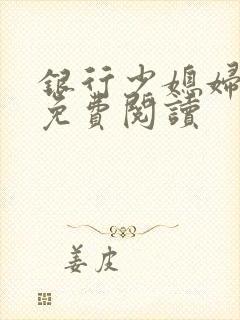 銀行少媳婦
免費閱讀
姜皮